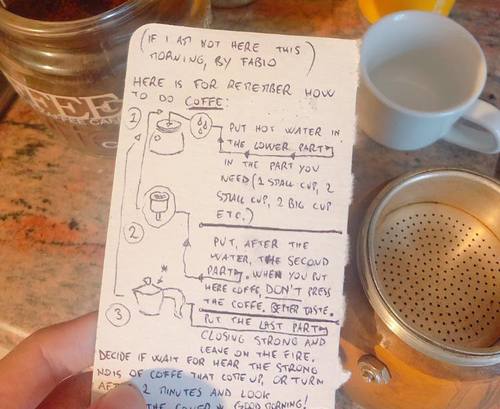 (IF I AM NOT HERE THIS
MORNING, BY FABIO)
HERE IS FOR REMEMBER HOW
TO DO COFFE:
1
PUT HOT WATER IN
THE LOWER PART
IN THE PART YOU
NEED (1 SMALL CUP, 2
SMALL CUP, 2 BIG CUP
ETC.)
2
PUT, AFTER THE
WATER, THE SECOND
PART. WHEN YOU PUT
HERE COFFE, DON'T PRESS
THE COFFE. BETTER TASTE.
3
PUT THE LAST PART
CLOSING STRONG AND
LEAVE ON THE FIRE.
DECIDE IF WAIT FOR HEAR THE STRONG
NOIS OF COFFE THAT COME UP, OR TURN
2 MINUTES AND LOOK
THE COVER * GOOD MORNING!